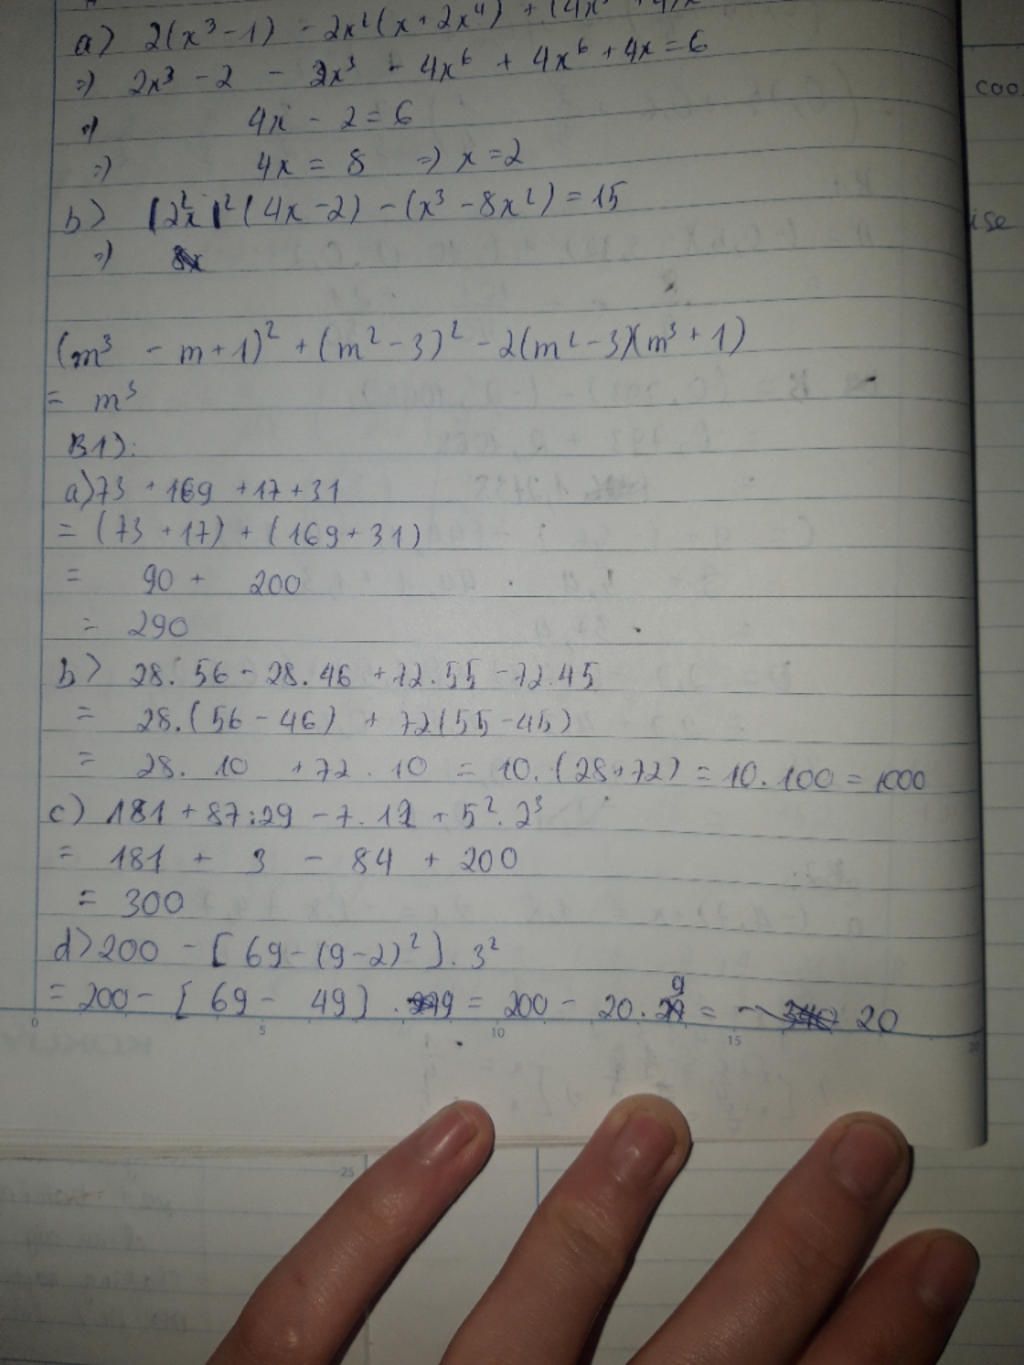 a) 2(x³-1) - 2x²(x+2x⁴) + (4x⁵+4)x
=) 2x³ - 2 - 2x³ - 4x⁶ + 4x⁶ + 4x = 6
=) 4x - 2 = 6
=) 4x = 8 =) x = 2
b) (2x)²(4x-2) - (x³-8x²) = 15
=) 8x
(m³ - m+1)² + (m²-3)² - 2(m²-3)(m³+1)
= m³
B1):
a) 73 + 169 + 17 + 31
= (73 + 17) + (169 + 31)
= 90 + 200
= 290
b) 28.56 - 28.46 + 72.55 - 72.45
= 28.(56 - 46) + 72(55-45)
= 28. 10 + 72 . 10 = 10.(28+72) = 10.100 = 1000
c) 181 + 87:29 - 7.12 + 5².2³
= 181 + 3 - 84 + 200
= 300
d) 200 - [69-(9-2)²].3²
= 200 - [69 - 49] . 9 = 200 - 20.9 = 20
0 5 10 15 20
25
coo
ise